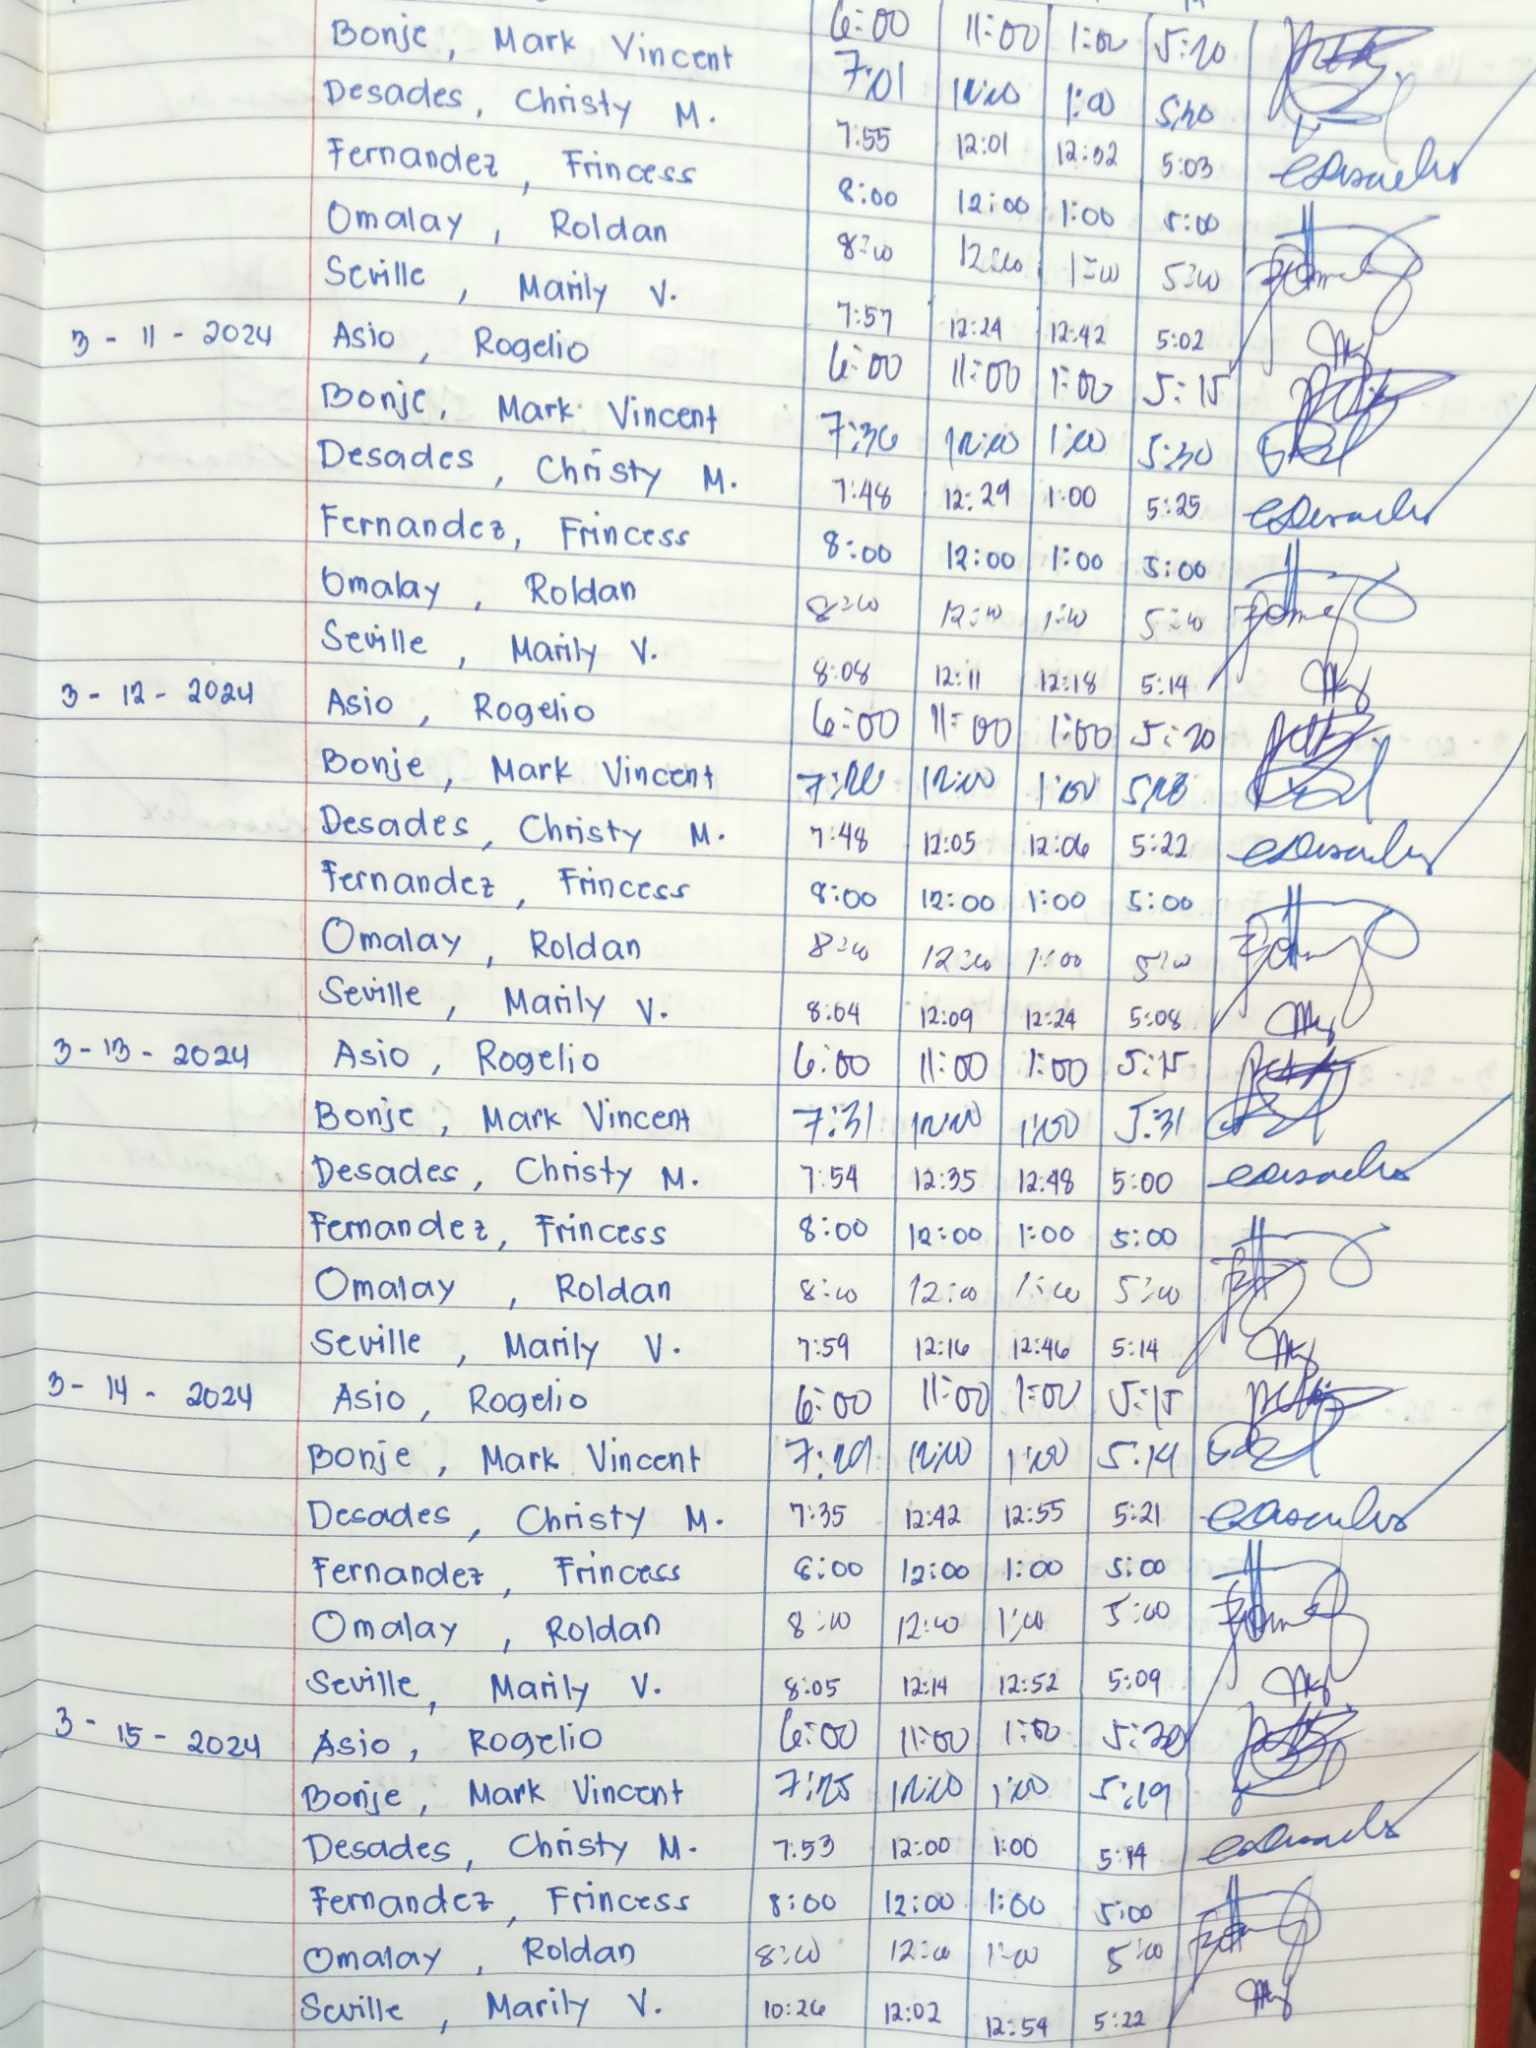 6:00 11:00 1:00 5:20
Bonje, Mark Vincent 7:01 12:00 1:00 5:20
Desades, Christy M. 7:55 12:01 12:32 5:03
Fernandez, Frincess 8:00 12:00 1:00 5:00
Omalay, Roldan 8:00 12:00 1:00 5:00
Seville, Marily V. 7:57 12:24 12:42 5:02
3-11-2024 Asio, Rogelio 6:00 11:00 1:00 5:15
Bonje, Mark Vincent 7:36 12:00 1:00 5:30
Desades, Christy M. 7:48 12:29 1:00 5:25
Fernandez, Frincess 8:00 12:00 1:00 5:00
Omalay, Roldan 8:00 12:00 1:00 5:00
Seville, Marily V. 8:08 12:11 12:18 5:14
3-12-2024 Asio, Rogelio 6:00 11:00 1:00 5:20
Bonje, Mark Vincent 7:20 12:00 1:00 5:28
Desades, Christy M. 7:48 12:05 12:06 5:22
Fernandez, Frincess 8:00 12:00 1:00 5:00
Omalay, Roldan 8:00 12:00 1:00 5:00
Seville, Marily V. 8:04 12:09 12:24 5:08
3-13-2024 Asio, Rogelio 6:00 11:00 1:00 5:15
Bonje, Mark Vincent 7:31 12:00 1:00 5:31
Desades, Christy M. 7:54 12:35 12:48 5:00
Fernandez, Frincess 8:00 12:00 1:00 5:00
Omalay, Roldan 8:00 12:00 1:00 5:00
Seville, Marily V. 7:59 12:16 12:46 5:14
3-14-2024 Asio, Rogelio 6:00 11:00 1:00 5:15
Bonje, Mark Vincent 7:29 12:00 1:00 5:14
Desades, Christy M. 7:35 12:42 12:55 5:21
Fernandez, Frincess 8:00 12:00 1:00 5:00
Omalay, Roldan 8:00 12:00 1:00 5:00
Seville, Marily V. 8:05 12:14 12:52 5:09
3-15-2024 Asio, Rogelio 6:00 11:00 1:00 5:20
Bonje, Mark Vincent 7:25 12:00 1:00 5:19
Desades, Christy M. 7:53 12:00 1:00 5:14
Fernandez, Frincess 8:00 12:00 1:00 5:00
Omalay, Roldan 8:00 12:00 1:00 5:00
Seville, Marily V. 10:26 12:02 12:54 5:22